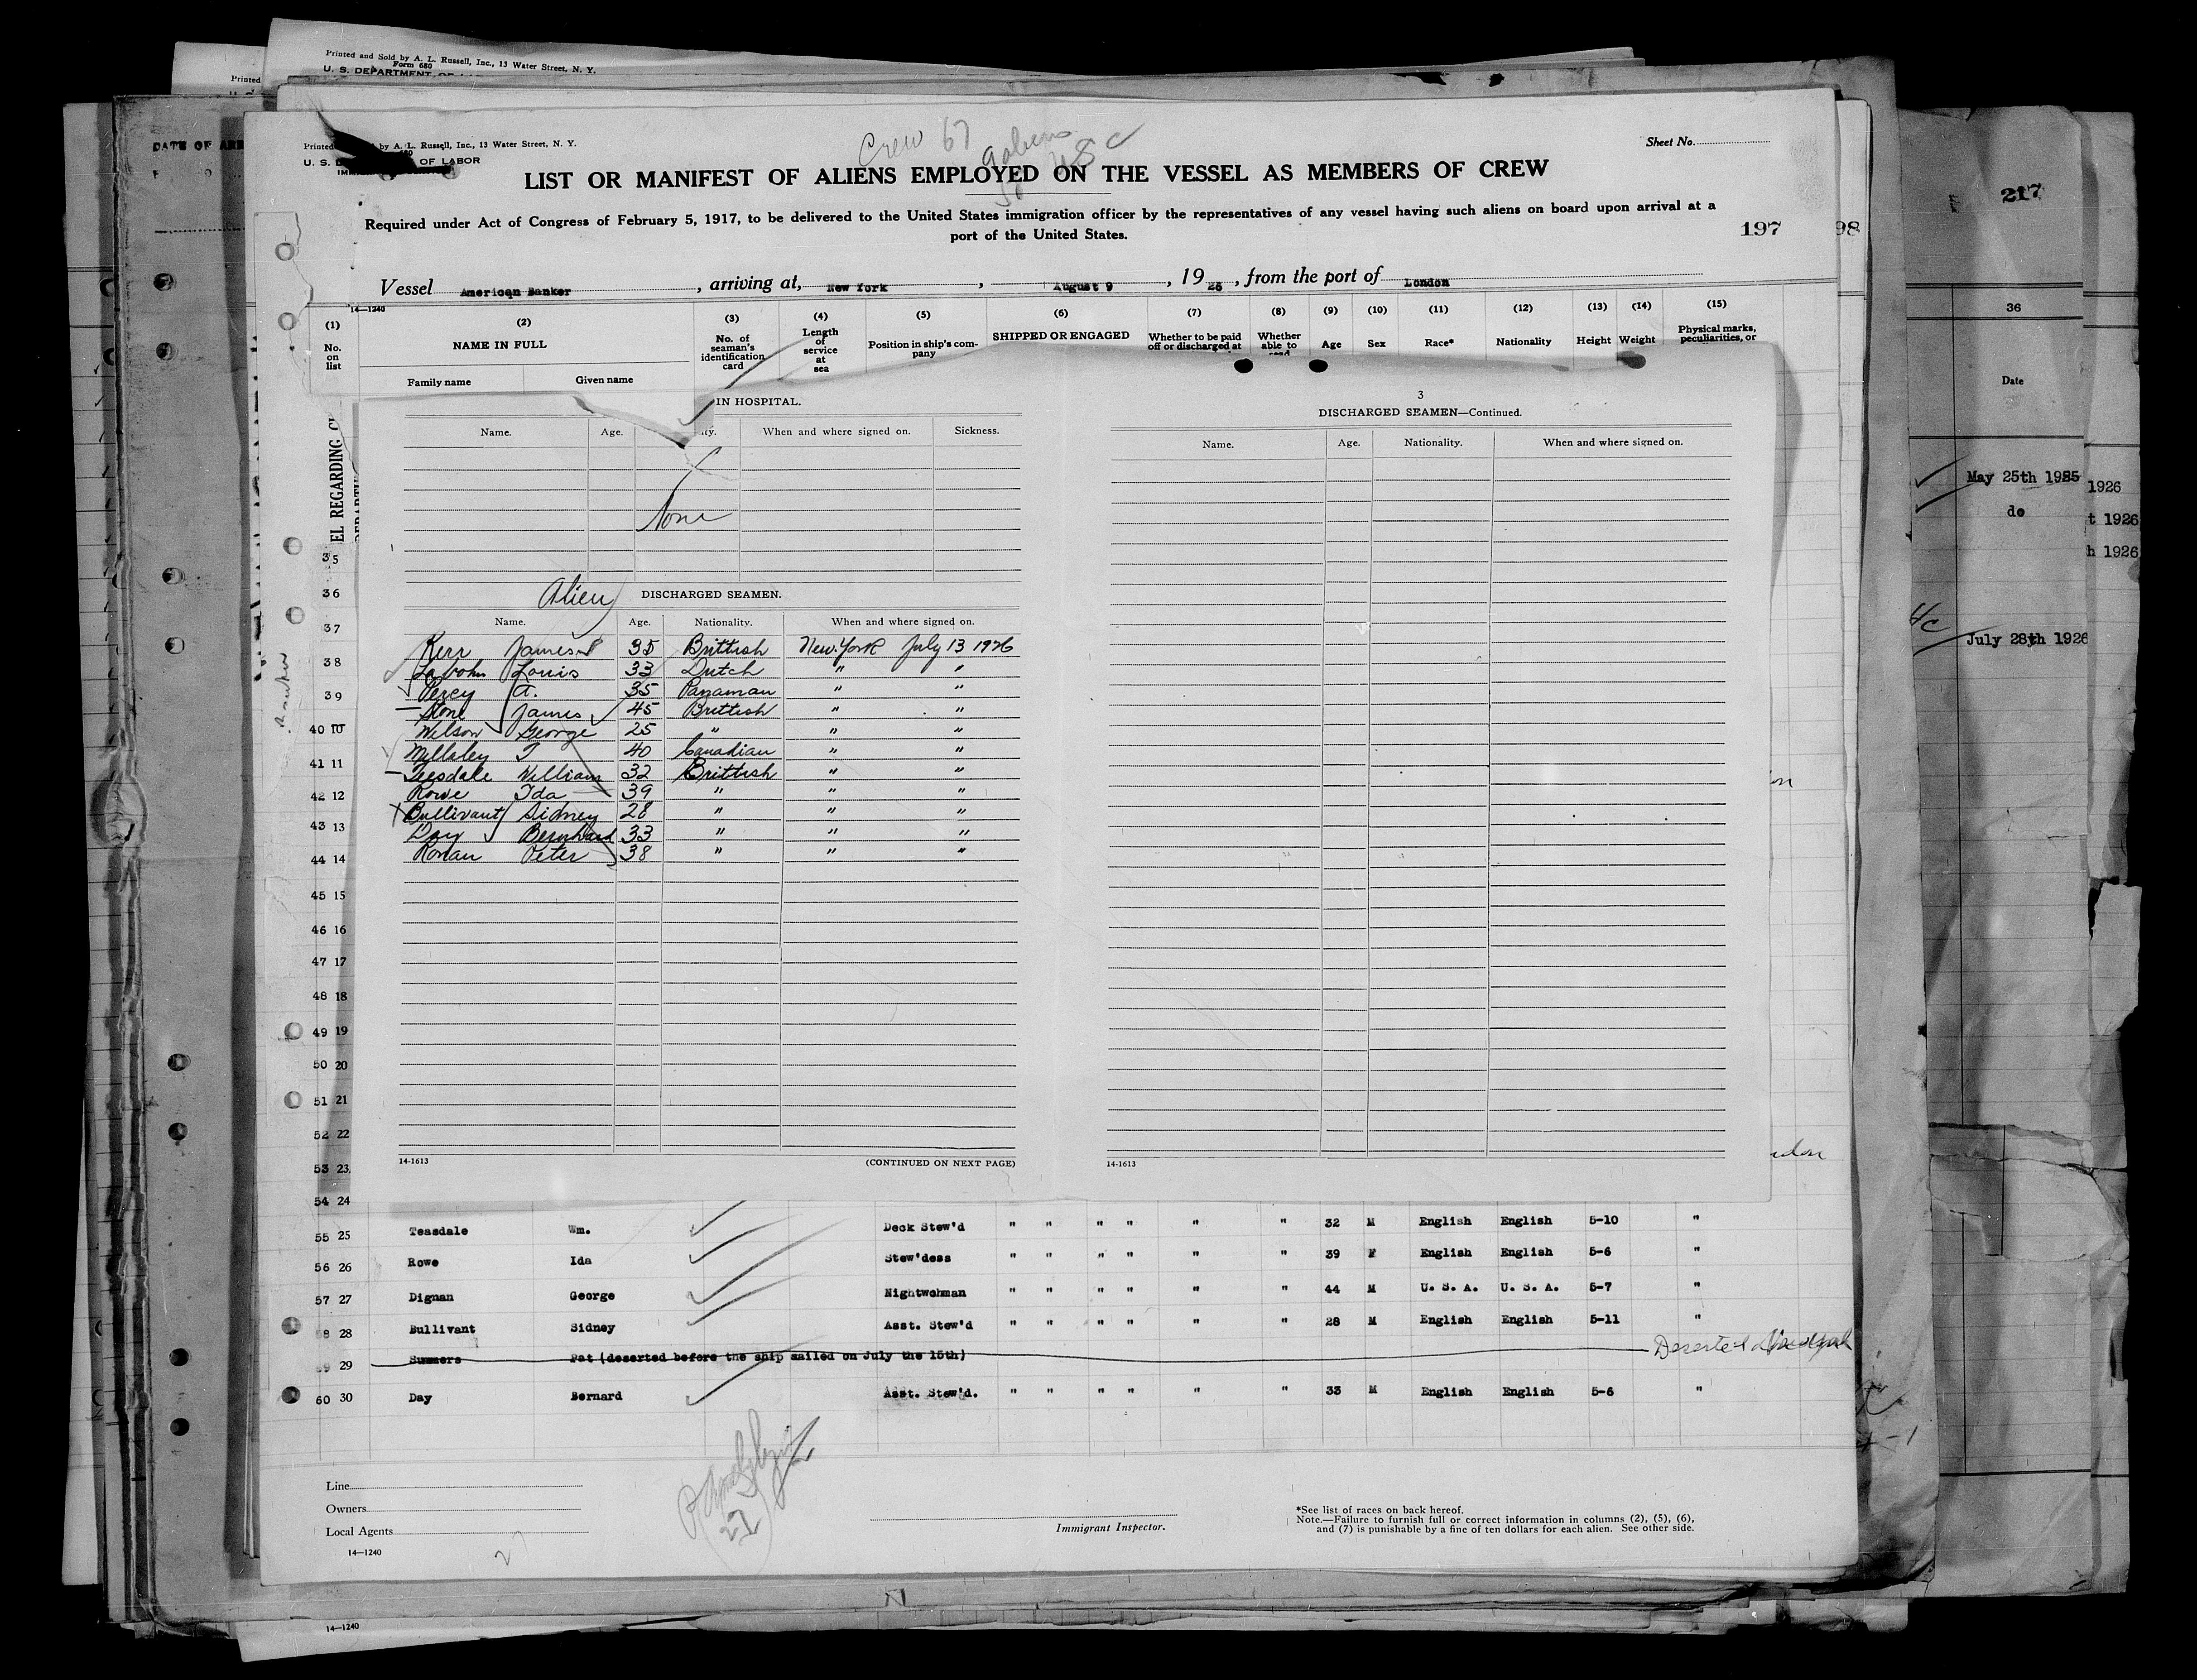 Printed and Sold by A. L. Russell, Inc., 13 Water Street, N. Y.
Form 680
Printed
DATE OF
217
36
Date
May 25th 1925
do
July 28th 1926
1926
t 1926
h 1926
98
Crew 67
Printed by A. L. Russell, Inc., 13 Water Street, N. Y.
U. S. D OF LABOR
Sheet No.
LIST OR MANIFEST OF ALIENS EMPLOYED ON THE VESSEL AS MEMBERS OF CREW
Required under Act of Congress of February 5, 1917, to be delivered to the United States immigration officer by the representatives of any vessel having such aliens on board upon arrival at a
port of the United States.
197
Vessel American Banker, arriving at, New York, August 9, 1926, from the port of London
14—1240
(1) (2) (3) (4) (5) (6) (7) (8) (9) (10) (11) (12) (13) (14) (15)
No. on list
NAME IN FULL
Family name Given name
No. of seaman's identification card
Length of service at sea
Position in ship's company
SHIPPED OR ENGAGED
Whether to be paid off or discharged at
Whether able to read
Age
Sex
Race*
Nationality
Height
Weight
Physical marks, peculiarities, or
EL REGARDING
IN HOSPITAL.
Name. Age. ity. When and where signed on. Sickness.
None
Alien DISCHARGED SEAMEN.
Name. Age. Nationality. When and where signed on.
Kerr James 35 Brittish New York July 13 1926
Louis 33 Dutch " "
Percy A. 35 Panaman " "
Stone James 45 Brittish " "
Wilson George 25 " " "
Mellaley T 40 Canadian " "
Teesdale William 32 Brittish " "
Rowe Ida 39 " " "
Bullivant Sidney 28 " " "
Day Bernhard 33 " " "
Ronan Peter 38 " " "
14-1613 (CONTINUED ON NEXT PAGE)
3
DISCHARGED SEAMEN—Continued.
Name. Age. Nationality. When and where signed on.
14-1613
35
36
37
38
39
40 10
41 11
42 12
43 13
44 14
45 15
46 16
47 17
48 18
49 19
50 20
51 21
52 22
53 23
54 24
55 25 Teasdale Wm. Deck Stew'd " " " " " " 32 M English English 5-10 "
56 26 Rowe Ida Stew'dess " " " " " " 39 F English English 5-6 "
57 27 Dignan George Nightwchman " " " " " " 44 M U. S. A. U. S. A. 5-7 "
58 28 Bullivant Sidney Asst. Stew'd " " " " " " 28 M English English 5-11 "
59 29 Summers Pat (deserted before the ship sailed on July the 15th) Deserted
60 30 Day Bernard Asst. Stew'd. " " " " " " 33 M English English 5-6 "
Line
Owners
Local Agents
14—1240
Immigrant Inspector.
*See list of races on back hereof.
Note.—Failure to furnish full or correct information in columns (2), (5), (6),
and (7) is punishable by a fine of ten dollars for each alien. See other side.
14—1240